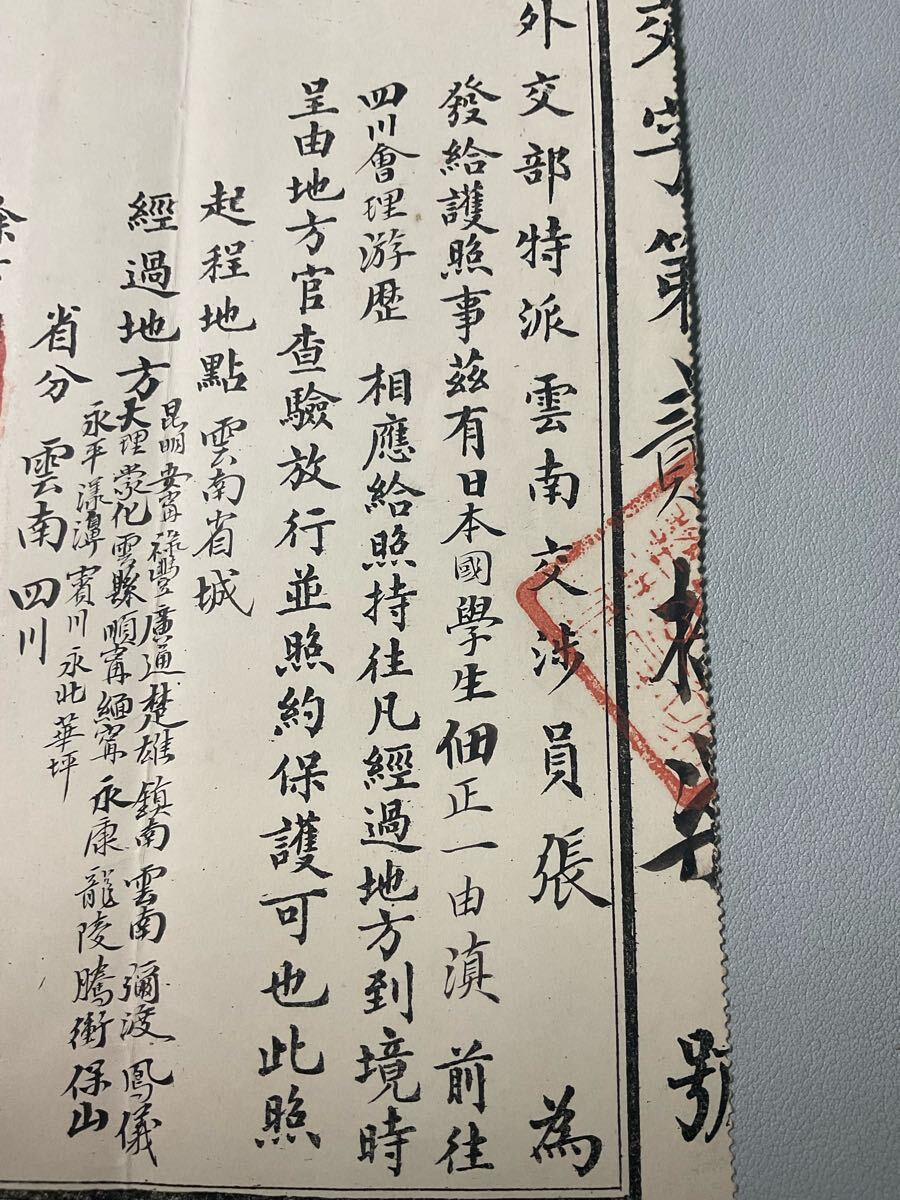 號
外交部特派雲南交涉員張　為
發給護照事茲有日本國學生佃正一由滇　前往
四川會理游歷　相應給照持往凡經過地方到境時
呈由地方官查驗放行並照約保護可也此照
起程地點雲南省城
經過地方
昆明安甯祿豐廣通楚雄鎮南雲南彌渡鳳儀
大理蒙化雲縣順甯緬甯永康龍陵騰衝保山
永平漾濞賓川永北華坪
省分　雲南四川